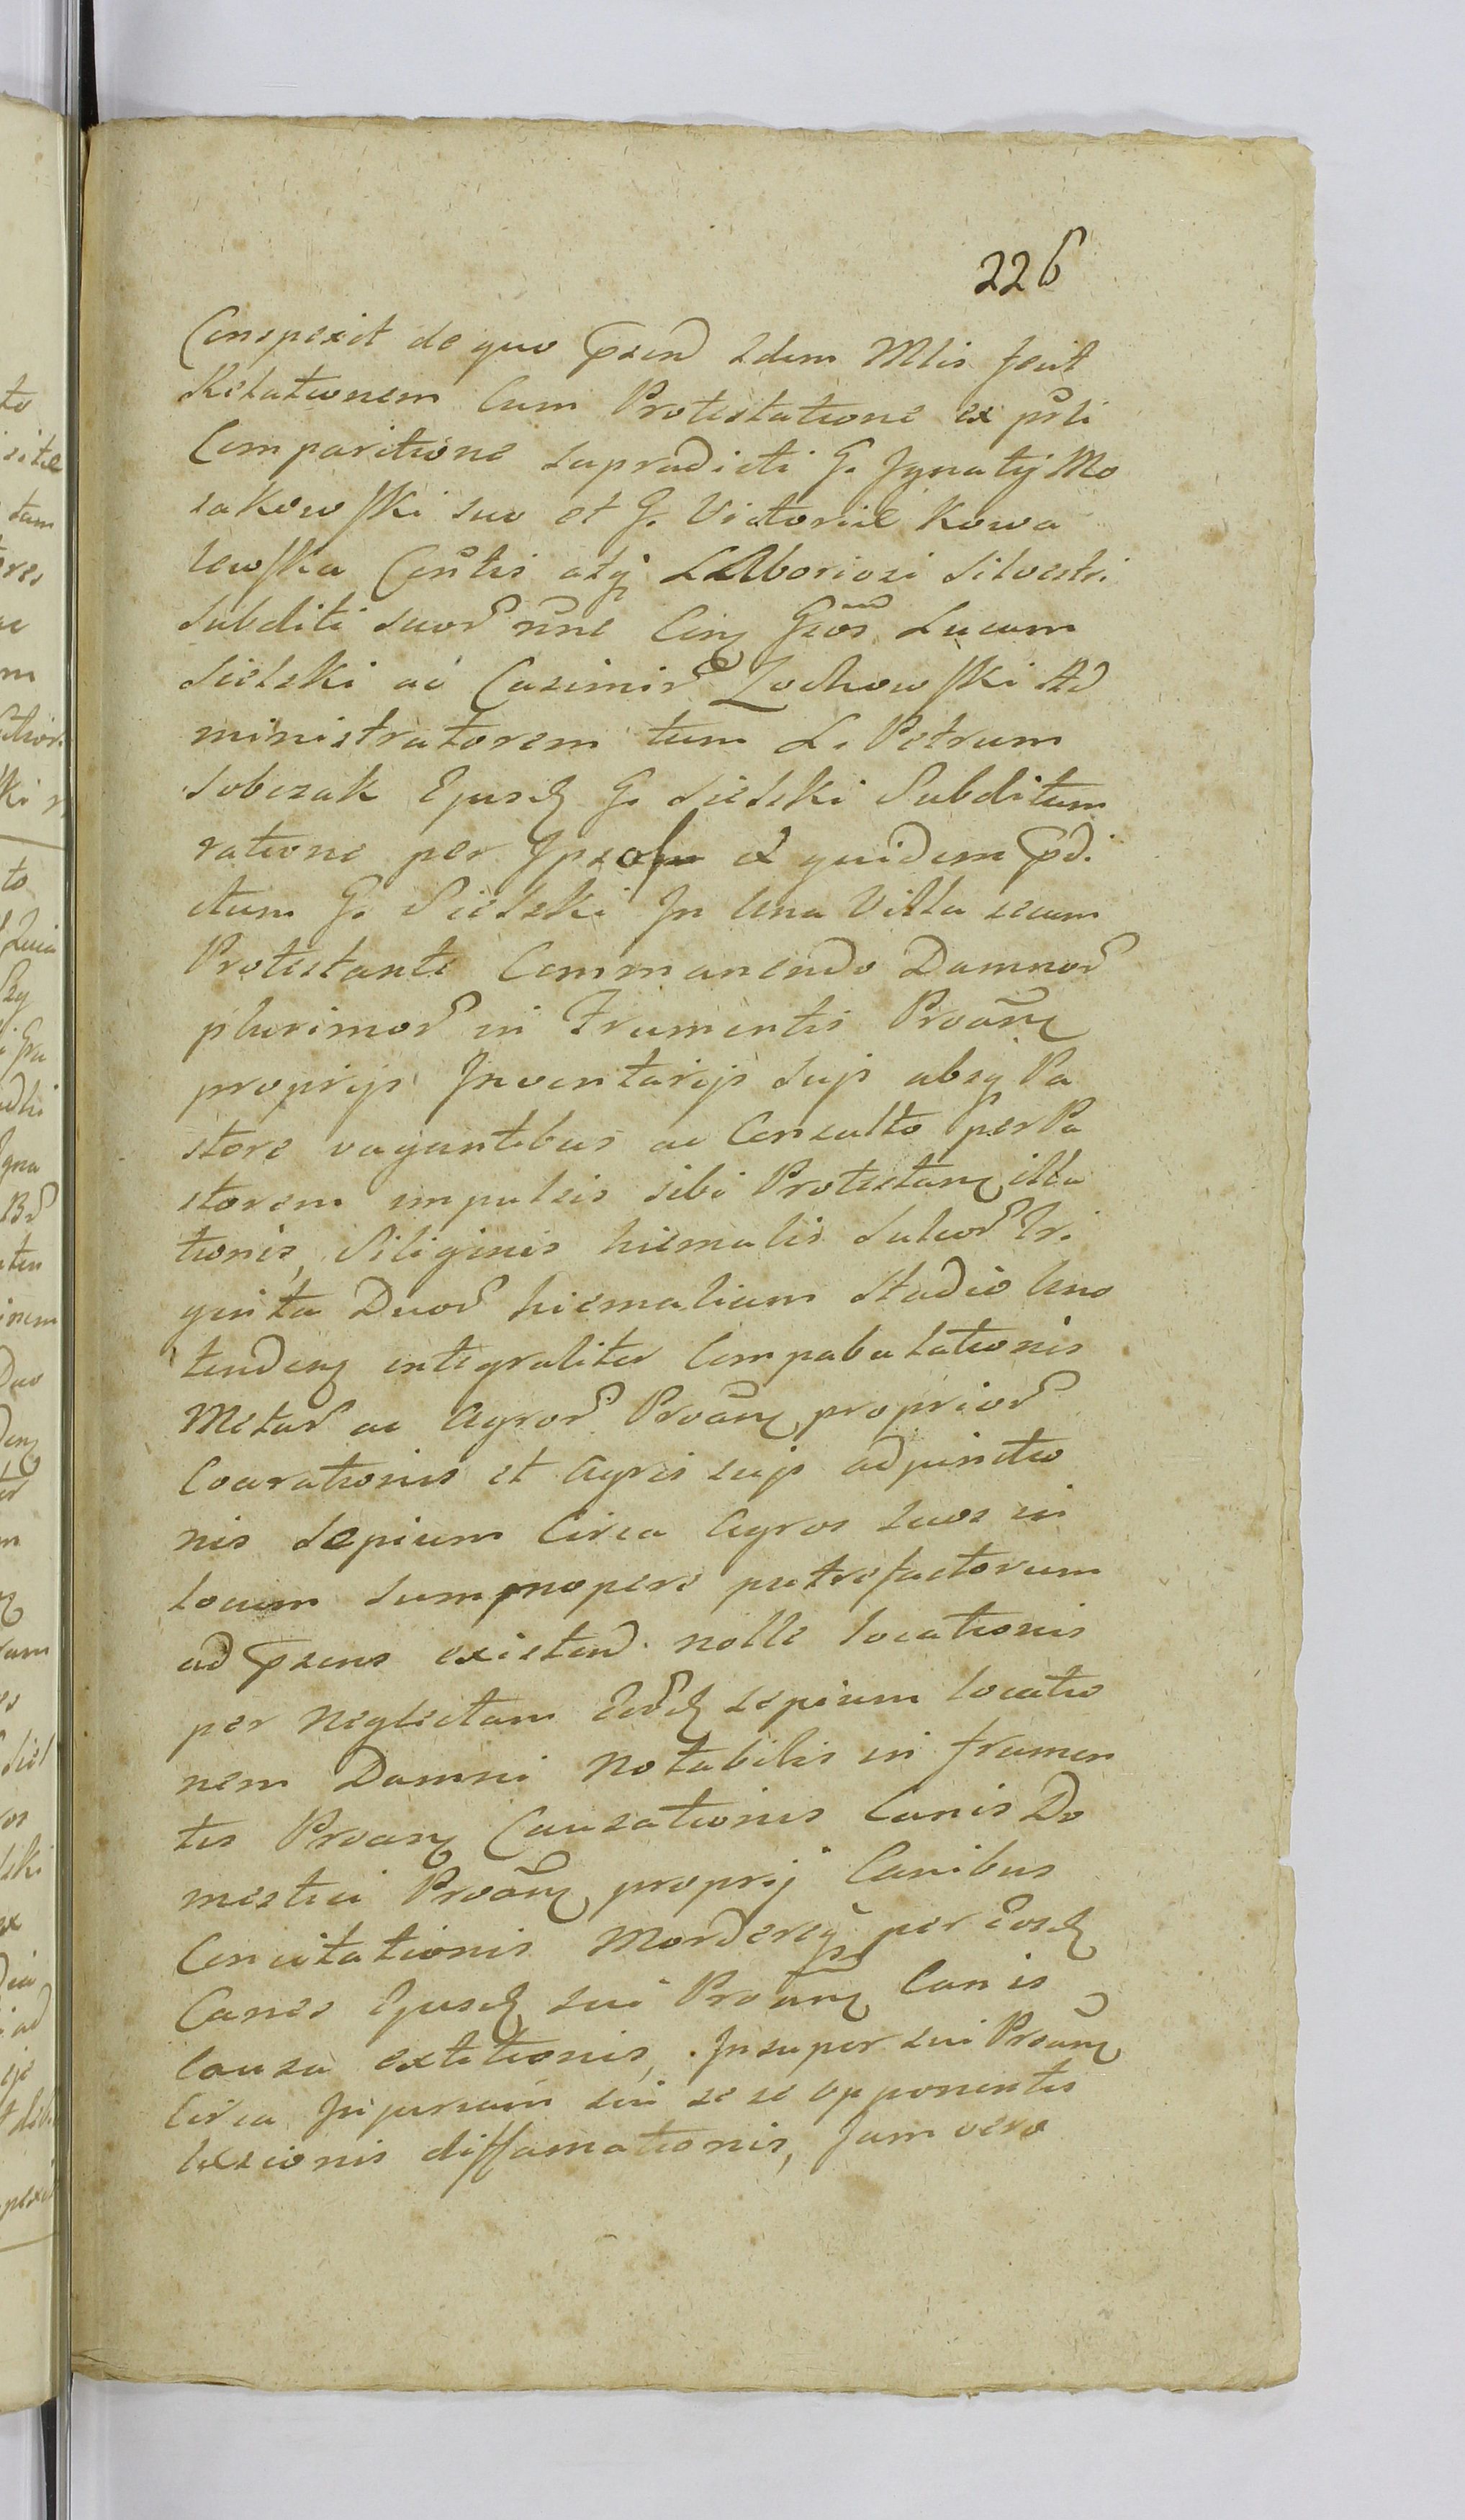 226
Conspexit de quo pxnd Idem Mlis fecit
Relationem Cum Protestatione ex prli
Comparitione supradicti G. Ignatij Mo
sakowski suo et G. Victoriæ Kowa
lewska Contis atq Laboriosi Silvestri
Subditi suor nne Cinq Gsos Lucam
Sielski ac Casimir Zochowski Ad
ministratorem tum L. Petrum
Sobczak Ejusd G. Sielski Subditum
ratione per Ipsos et quidem pdi
ctum G. Sielski In Una Villa secum
Protestante Commanendo Damnor
plurimor in Frumentis Proang
proprijs Inventarijs suis absq Pa
store vagantibus ac Consulto per Pa
storem impulsis sibi Protestang illa
tionis, Siliginis hiemalis Sulcor Tri
ginta Duor hiemalium Stadio Uno
tendeng integraliter Compabulationis
Metar ac Agror Proang proprior
Coarationis et Agris suis adjunctio
nis Sepium Circa Agros suos in
locum Summopere putrefactorum
ad pxens existend nolle locationis
per Neglectam Eard sepium locatio
nem Damni Notabilis in frumen
tis Proang Causationis Canis Do
mestici Proang proprij Canibus
Concitationis Mordereq per eosd
Canes Ejusd sui Proang Canis
causa extitionis, Insuper sui Proang
Circa Injuriam sui se se opponentis
læsionis diffamationis, Jam vero